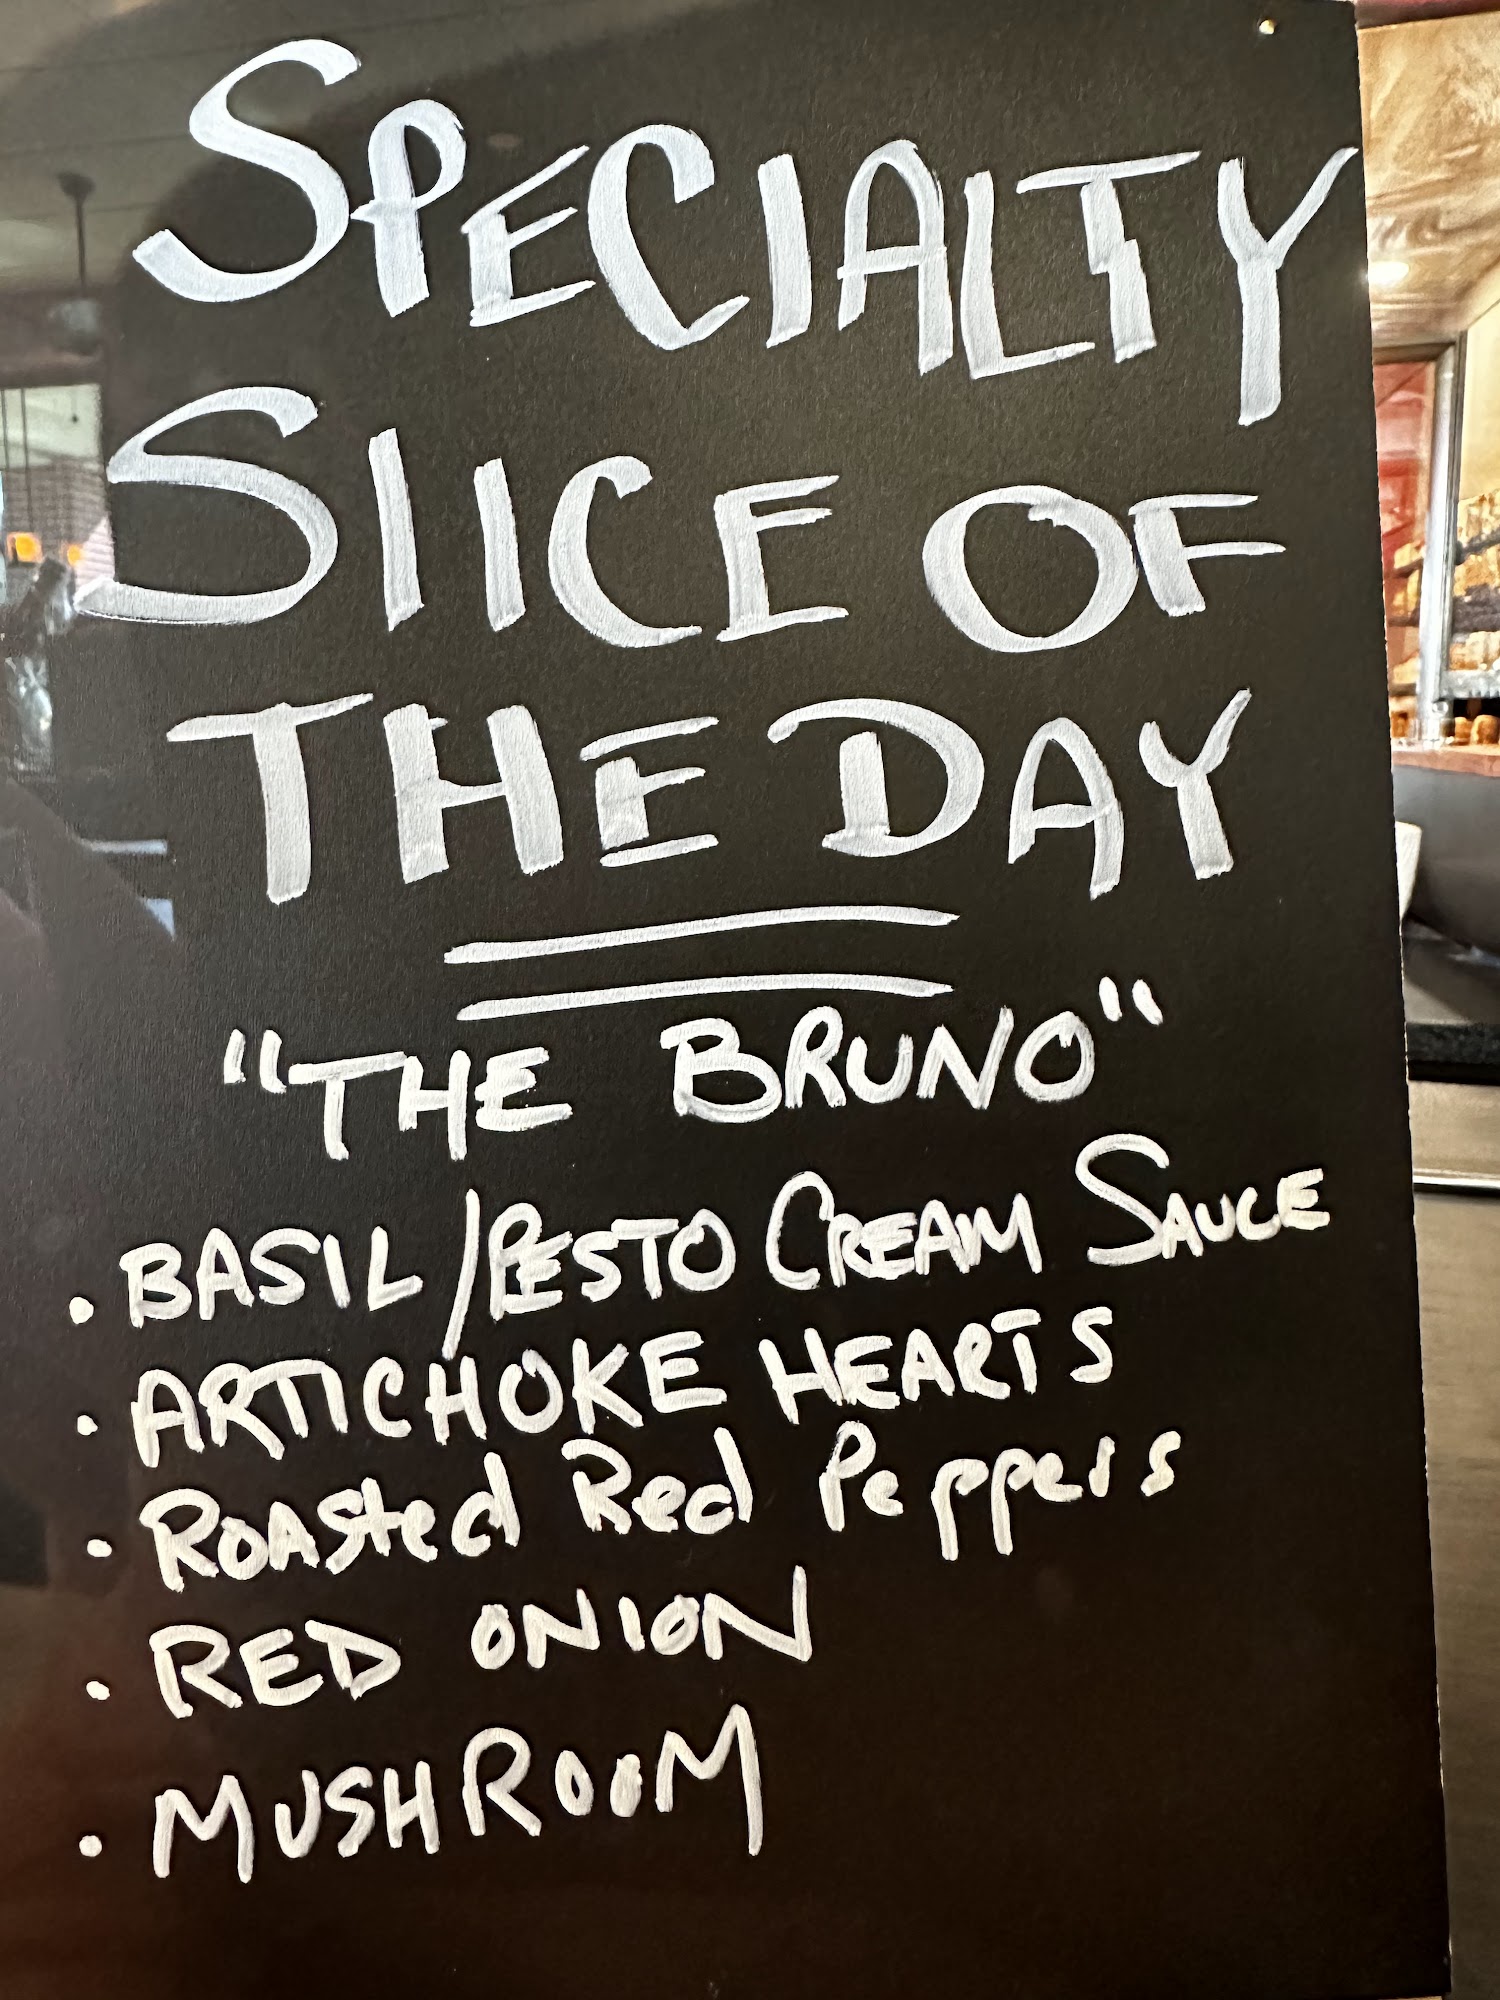 SPECIALTY
SlICE OF
THE DAY
"THE BRUNO"
• BASIL/PESTO CREAM SAUCE
• ARTICHOKE HEARTS
• ROASted Red Peppers
• RED ONION
• MUSHROOM